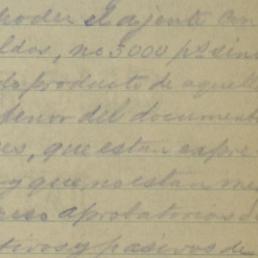 poder el ajente con
ldos, no 5000 ps sinó
do producto de aquell
tenor del document
es, que estan expre
y que no estan me
eso aprobatorios d
tivos y pasivos de